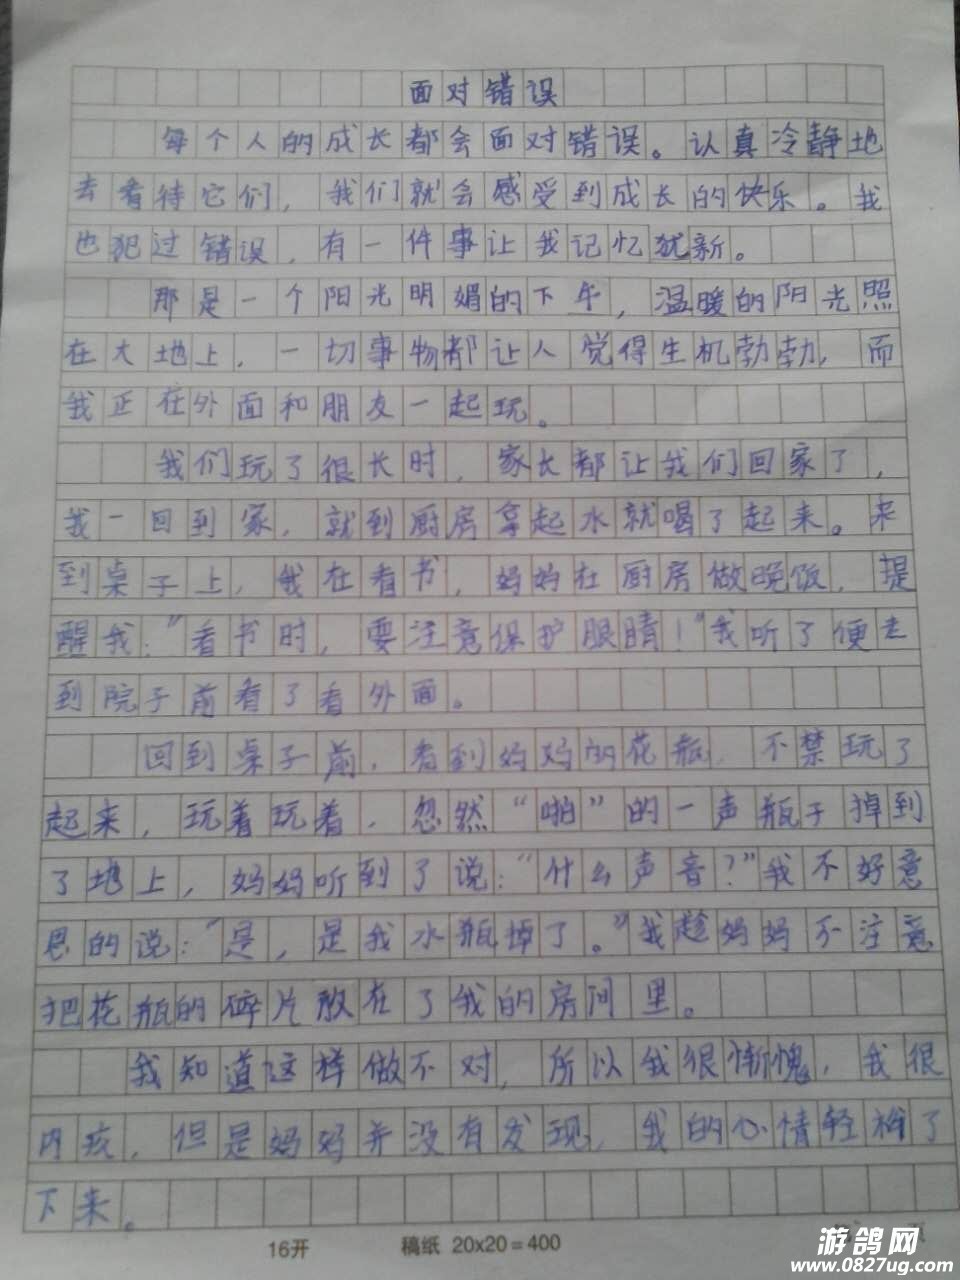 面对错误
每个人的成长都会面对错误。认真冷静地
去看待它们，我们就会感受到成长的快乐。我
也犯过错误，有一件事让我记忆犹新。
那是一个阳光明媚的下午，温暖的阳光照
在大地上，一切事物都让人觉得生机勃勃，而
我正在外面和朋友一起玩。
我们玩了很长时，家长都让我们回家了，
我一回到家，就到厨房拿起水就喝了起来。来
到桌子上，我在看书，妈妈在厨房做晚饭，提
醒我："看书时，要注意保护眼睛！"我听了便走
到院子前看了看外面。
回到桌子前，看到妈妈的花瓶，不禁玩了
起来，玩着玩着，忽然"啪"的一声瓶子掉到
了地上，妈妈听到了说："什么声音？"我不好意
思的说："是，是我水瓶掉了。"我趁妈妈不注意
把花瓶的碎片放在了我的房间里。
我知道这样做不对，所以我很惭愧，我很
内疚，但是妈妈并没有发现，我的心情轻松了
下来。
16开 稿纸 20x20=400
游鸽网
www.0827ug.com